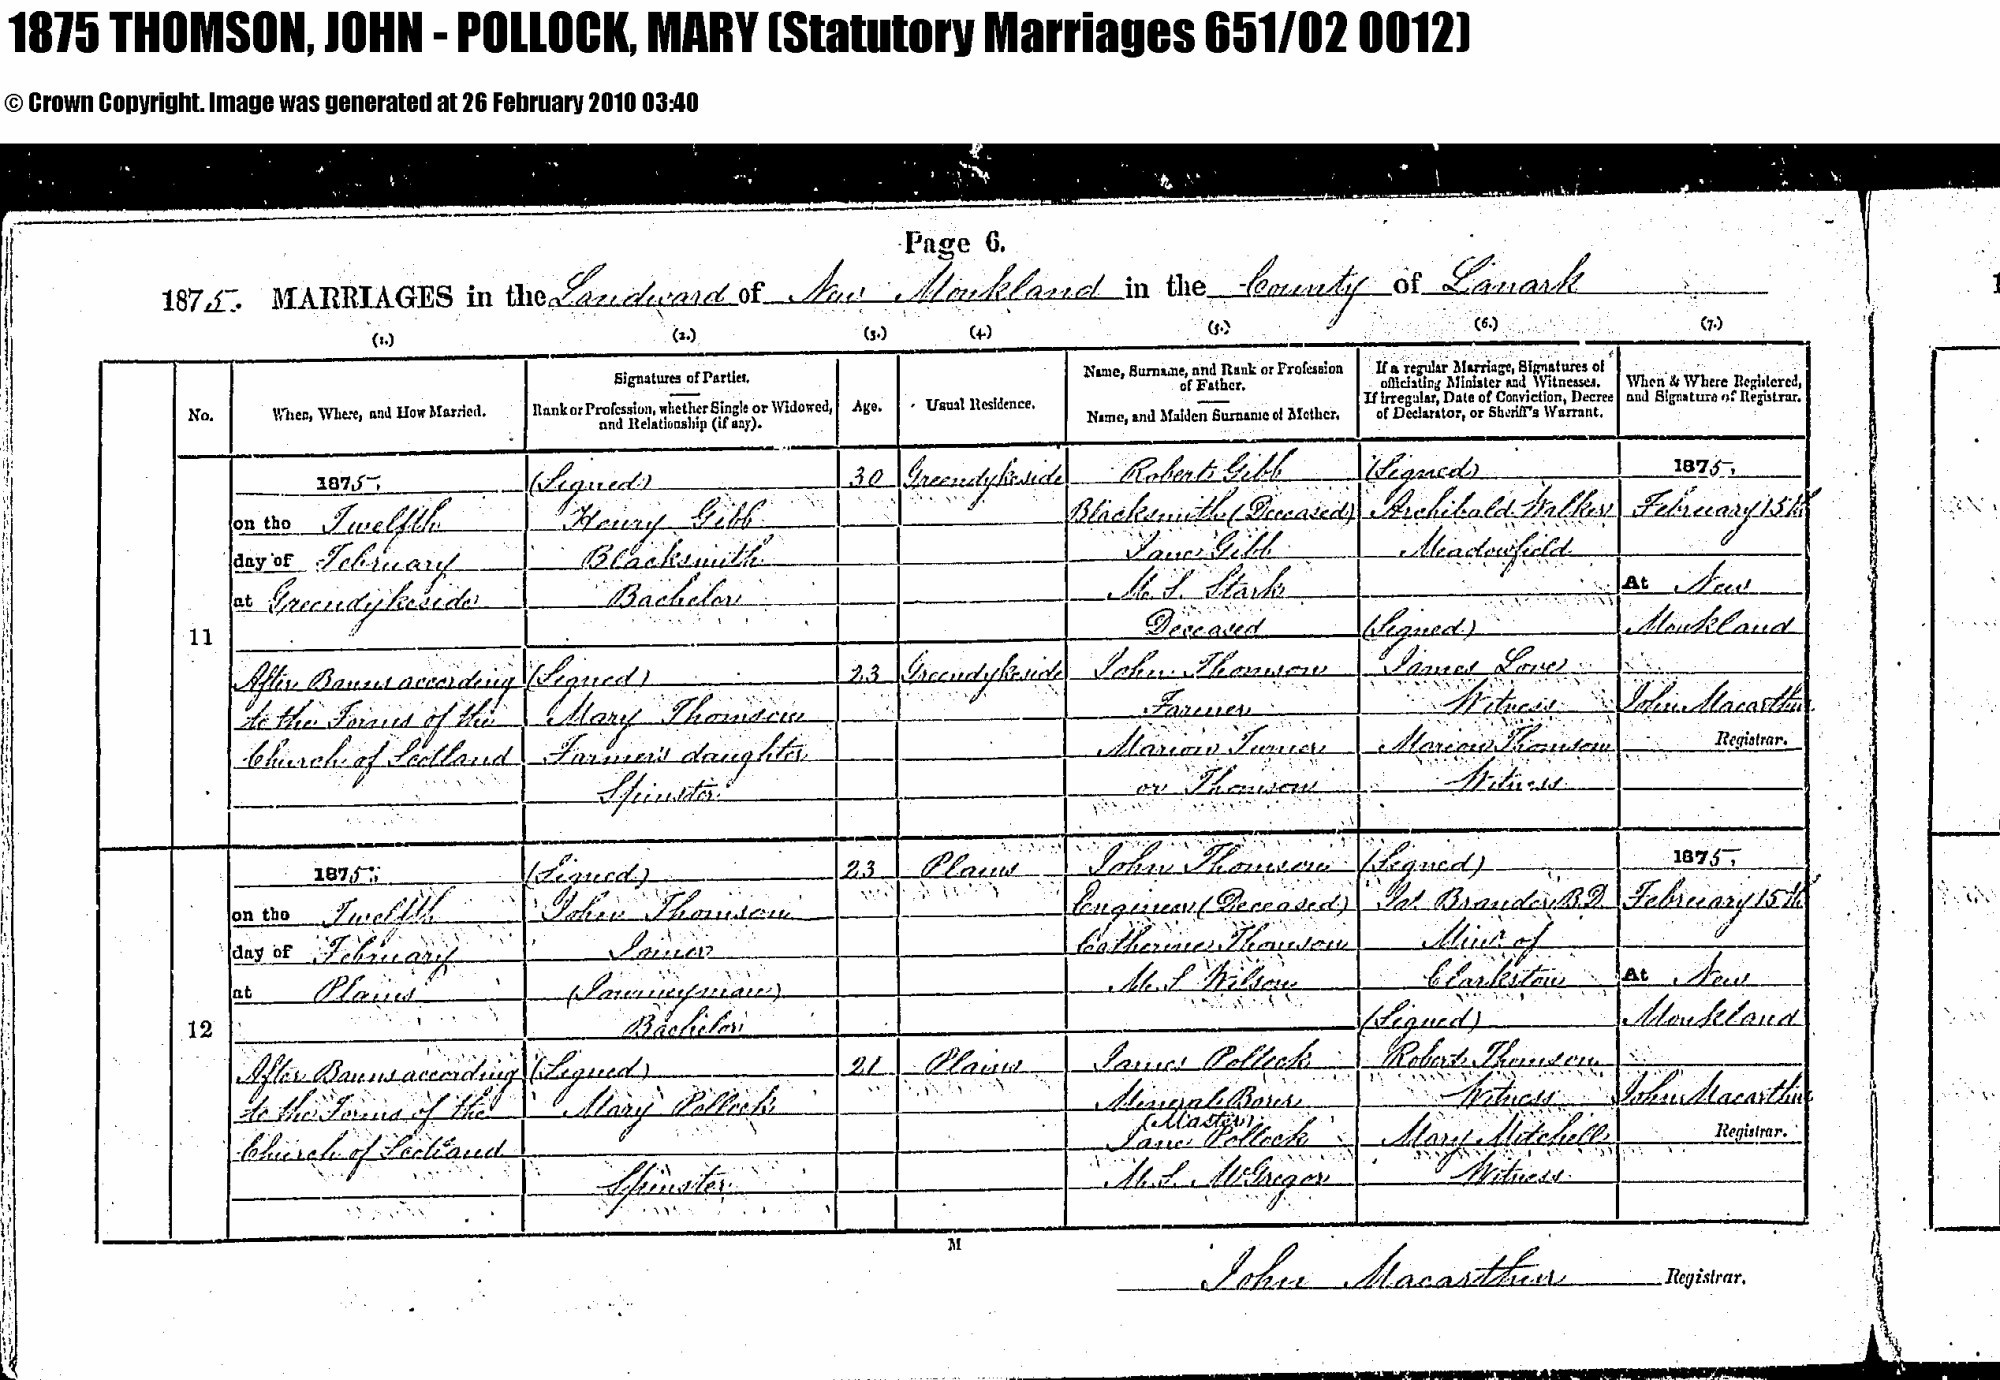 1875 THOMSON, JOHN - POLLOCK, MARY (Statutory Marriages 651/02 0012)
© Crown Copyright. Image was generated at 26 February 2010 03:40
Page 6.
1875. MARRIAGES in the Landward of New Monkland in the County of Lanark
(1.) (2.) (3.) (4.) (5.) (6.) (7.)
No.
When, Where, and How Married.
Signatures of Parties.
Rank or Profession, whether Single or Widowed,
and Relationship (if any).
Age.
Usual Residence.
Name, Surname, and Rank or Profession
of Father.
Name, and Maiden Surname of Mother.
If a regular Marriage, Signatures of
officiating Minister and Witnesses.
If irregular, Date of Conviction, Decree
of Declarator, or Sheriff's Warrant.
When & Where Registered,
and Signature of Registrar.
11
1875.
on the Twelfth
day of February
at Greendykeside
After Banns according
to the Forms of the
Church of Scotland
(Signed)
Henry Gibb
Blacksmith
Bachelor
(Signed)
Mary Thomson
Farmer's daughter
Spinster
30
23
Greendykeside
Greendykeside
Robert Gibb
Blacksmith (Deceased)
Jane Gibb
M. S. Stark
Deceased
John Thomson
Farmer
Marion Turner
or Thomson
(Signed)
Archibald Walker
Meadowfield
(Signed)
James Love
Witness
Marion Thomson
Witness
1875.
February 15th
At New
Monkland
John Macarthur
Registrar.
12
1875.
on the Twelfth
day of February
at Plains
After Banns according
to the Forms of the
Church of Scotland
(Signed)
John Thomson
Joiner
(Journeyman)
Bachelor
(Signed)
Mary Pollock
Spinster
23
21
Plains
Plains
John Thomson
Engineer (Deceased)
Catherine Thomson
M. S. Wilson
James Pollock
Mineral Borer
(Master)
Jane Pollock
M. S. McGregor
(Signed)
Brander B.D.
Minr. of
Clarkston
(Signed)
Robert Thomson
Witness
Mary Mitchell
Witness
1875.
February 15th
At New
Monkland
John Macarthur
Registrar.
M
John Macarthur Registrar.